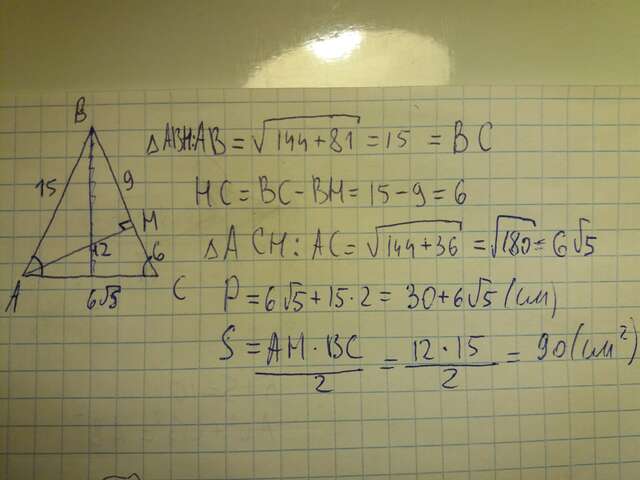 B
15
9
H
12
6
A
6√5
C
△ABH: AB = √144+81 = 15 = BC
HC = BC - BH = 15 - 9 = 6
△ACH: AC = √144+36 = √180 = 6√5
P = 6√5 + 15·2 = 30 + 6√5 (см)
S = AH·BC/2 = 12·15/2 = 90 (см²)